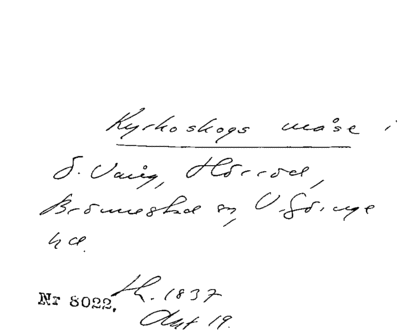 Kyrkoskogs måse i
Ö. Vång, Hörröd,
Brönnestad sn, V. Göinge
hd.
Nr 8022. 1837
Akt 19.